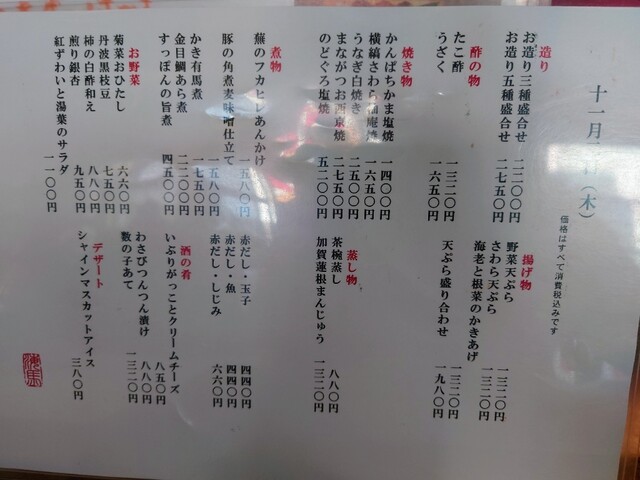 十一月 日（木）
価格はすべて消費税込みです
造り
お造り三種盛合せ 二二〇〇円
お造り五種盛合せ 二七五〇円
酢の物
たこ酢 一三二〇円
うざく 一六五〇円
焼き物
かんぱちかま塩焼 一四〇〇円
横縞さわら 庵焼 一六五〇円
うなぎ白焼き 二五〇〇円
まながつお西京焼 二七五〇円
のどぐろ塩焼 五二〇〇円
煮物
蕪のフカヒレあんかけ 一五八〇円
豚の角煮麦味噌仕立て 一五八〇円
かき有馬煮 一七五〇円
金目鯛あら煮 二二〇〇円
すっぽんの旨煮 四五〇〇円
お野菜
菊菜おひたし 六六〇円
丹波黒枝豆 七五〇円
柿の白酢和え 八八〇円
煎り銀杏 九五〇円
紅ずわいと湯葉のサラダ 一一〇〇円
揚げ物
野菜天ぷら 一三二〇円
さわら天ぷら 一三二〇円
海老と根菜のかきあげ 一三二〇円
天ぷら盛り合わせ 一九八〇円
蒸し物
茶椀蒸し 八八〇円
加賀蓮根まんじゅう 一三二〇円
赤だし・玉子 四四〇円
赤だし・魚 四四〇円
赤だし・しじみ 六六〇円
酒の肴
いぶりがっことクリームチーズ 八五〇円
わさびつんつん漬け 八八〇円
数の子あて 一三二〇円
デザート
シャインマスカットアイス 三八〇円